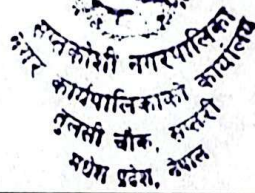 सप्तकोशी नगरपालिका
नगर कार्यपालिकाको कार्यालय
तुलसी चौक, सप्तरी
मधेश प्रदेश, नेपाल